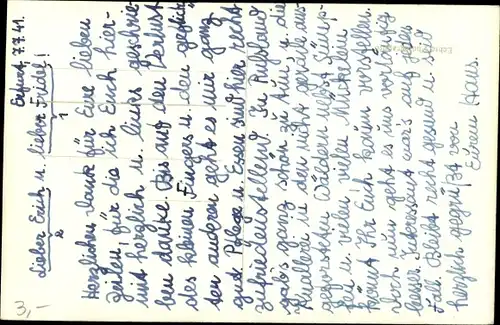 Erfurt, 7.7.41.
Lieber Erich u. lieber Friedel!
2 1
Herzlichen Dank für Eure lieben
Zeilen, für die ich Euch hier-
mit herzlich u. links geschrie-
ben danke. Bis auf den Verlust
des kleinen Fingers u. den gequetsch-
ten anderen geht es mir ganz
gut. Pflege u. Essen sind hier recht
zufriedenstellend. In Rußland
gab's ganz schön zu tun u. die
Knallerei in den nicht gerade aus-
geforsteten Wäldern nebst Sümp-
fen u. vielen vielen Mückelein
könnt Ihr Euch kaum vorstellen.
Doch nun geht es uns vorläufig
besser. Interessant war's auf jeden
Fall. Bleibt recht gesund u. seid
herzlich gegrüßt von
Eurem Hans.
3,-